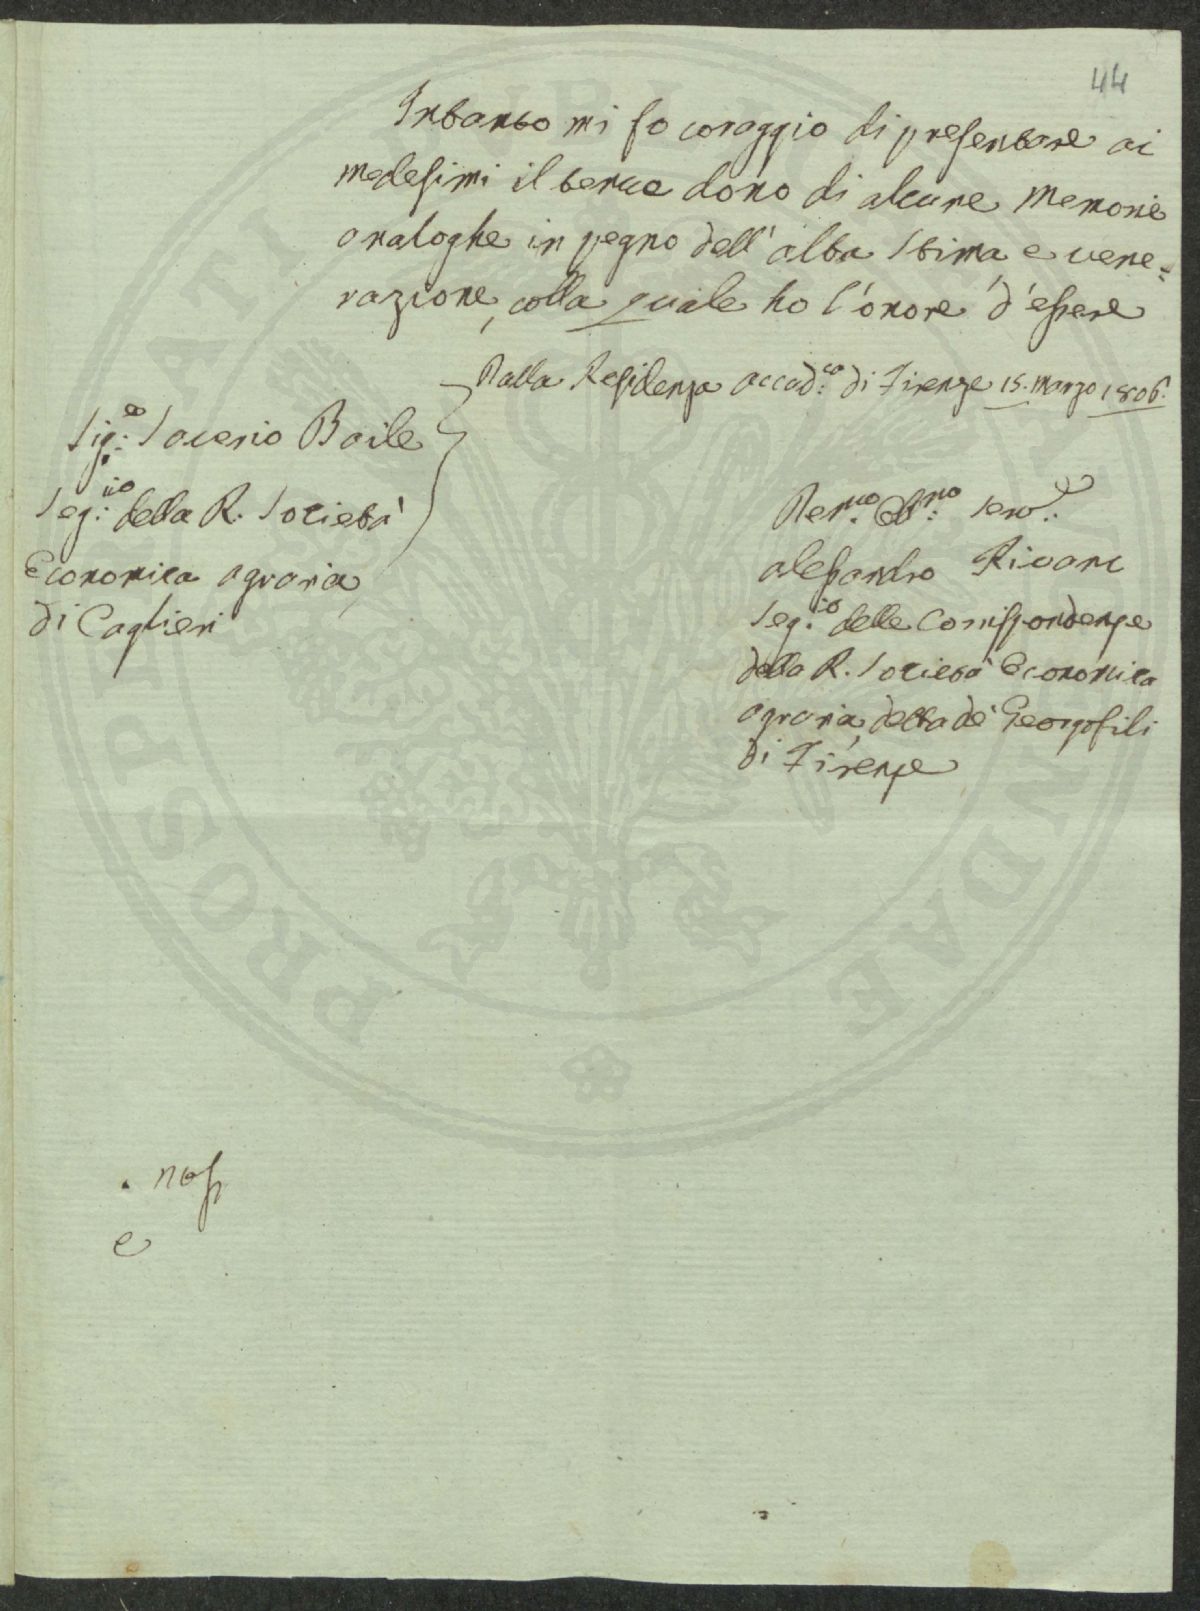 44
Intanto mi fo coraggio di presentare ai
medesimi il tenue dono di alcune Memorie
analoghe in pegno dell'alta stima e vene=
razione, colla quale ho l'onore d'essere
Dalla Residenza accad.ca di Firenze 15. Marzo 1806.
Sig.e Saverio Baile
Seg.iio della R. Società
Economica agraria
di Caglieri
Dev.mo Obb.mo serv.e
alessandro Rivani
Seg.io delle Corrispondenze
della R. Società Economica
agraria, detta de' Georgofili
di Firenze
e
PROSPERITATI PUBLICAE AUGENDAE